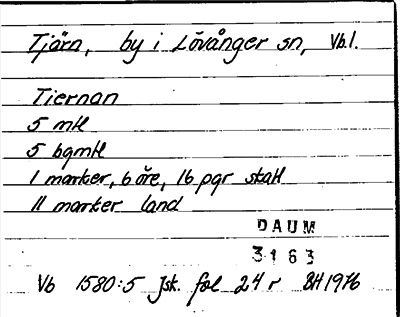 Tjärn, by i Lövånger sn, Vb l.
Tiernan
5 mtl
5 bgmtl
1 marker, 6 öre, 16 pgr skatt
11 marker land
DAUM
3163
Vb 1580:5 Jsk. fol 24 r BH 1976